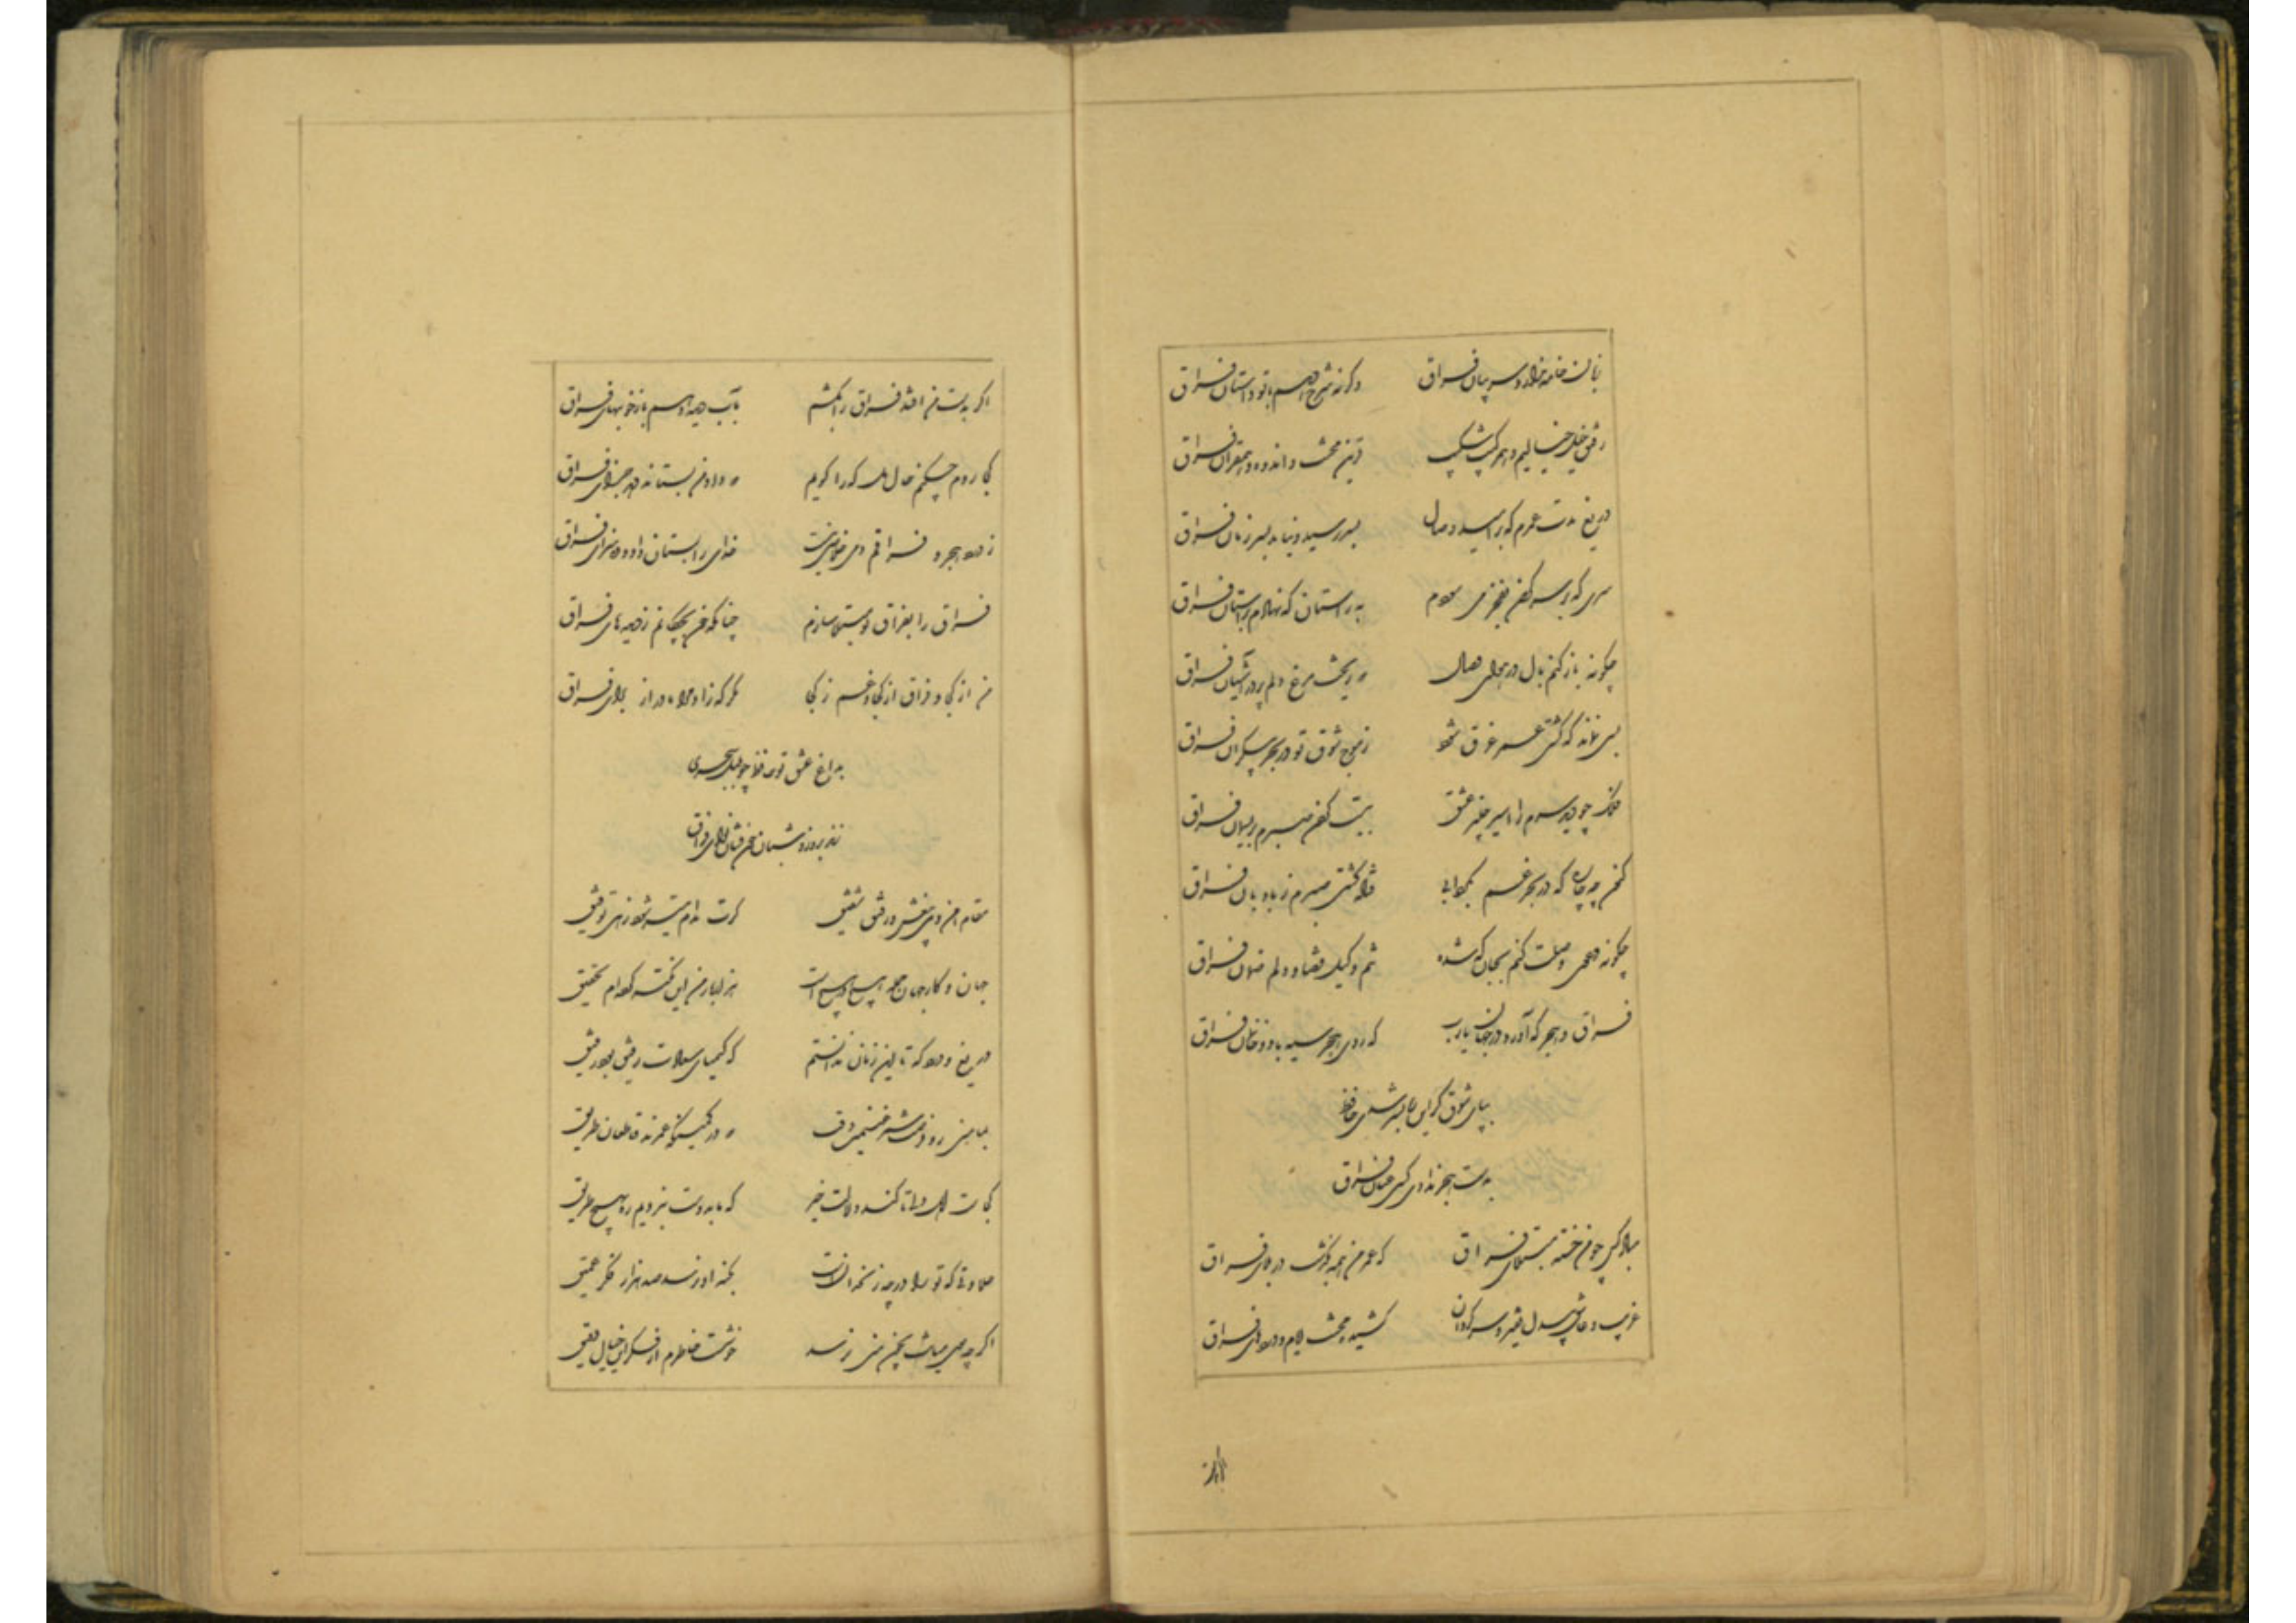 زبان خامه ندارد سر بیان فراق وگرنه شرح دهم با تو داستان فراق
رفیق خیل خیالیم و همرکیب شکیب قرین محنت و اندوه و همقران فراق
دریغ مدت عمرم که بر امید وصال بسر رسید و نیامد بسر زمان فراق
سری که بر سر گردون بفخر می‌سودم به راستان که نهادم بر آستان فراق
چگونه باز کنم بال در هوای وصال که ریخت مرغ دلم پر در آشیان فراق
بسی نماند که کشتی عمر غرق شود ز موج شوق تو در بحر بیکران فراق
فلک چو دید سرم را اسیر چنبر عشق ببست گردن صبرم بریسمان فراق
کنون چه چاره که در بحر غم بگردابی فتاد کشتی صبرم ز بادبان فراق
چگونه دعوی وصلت کنم بجان که شده تنم وکیل قضا و دلم ضمان فراق
فراق و هجر که آورد در جهان یارب که روی هجر سیه باد و خانمان فراق
بپای شوق گر این ره بسر شدی حافظ
بدست هجر ندادی کسی عنان فراق
مباد کس چو من خسته مبتلای فراق که عمر من همه بگذشت در بلای فراق
غریب و عاشق و بیدل فقیر و سرگردان کشیده محنت ایام و دردهای فراق
اگر بدست من افتد فراق را بکشم بآب دیده دهم باز خونبهای فراق
کجا روم چکنم حال دل که را گویم که داد من بستاند دهد جزای فراق
ز درد هجر و فراقم دمی خلاصی نیست خدای را بستان داد و ده سزای فراق
فراق را بفراق تو مبتلا سازم چنانکه خون بچکانم ز دیده‌های فراق
من از کجا و فراق از کجا و غم ز کجا مگر که زاد مرا مادر از برای فراق
بداغ عشق تو حافظ چو بلبل سحری
زند بروز و شبان خون فشان نوای فراق
مقام امن و می بیغش و رفیق شفیق گرت مدام میسر شود زهی توفیق
جهان و کار جهان جمله هیچ در هیچ است هزار بار من این نکته کرده‌ام تحقیق
دریغ و درد که تا این زمان ندانستم که کیمیای سعادت رفیق بود رفیق
بمأمنی رو و فرصت شمر غنیمت وقت که در کمینگه عمرند قاطعان طریق
کجاست اهل دلی تا کند دلالت خیر که ما بدوست نبردیم ره بهیچ طریق
حلاوتی که تو را در چه زنخدانست بکنه او نرسد صد هزار فکر عمیق
اگرچه موی میانت بچون منی نرسد خوشست خاطرم از فکر این خیال دقیق